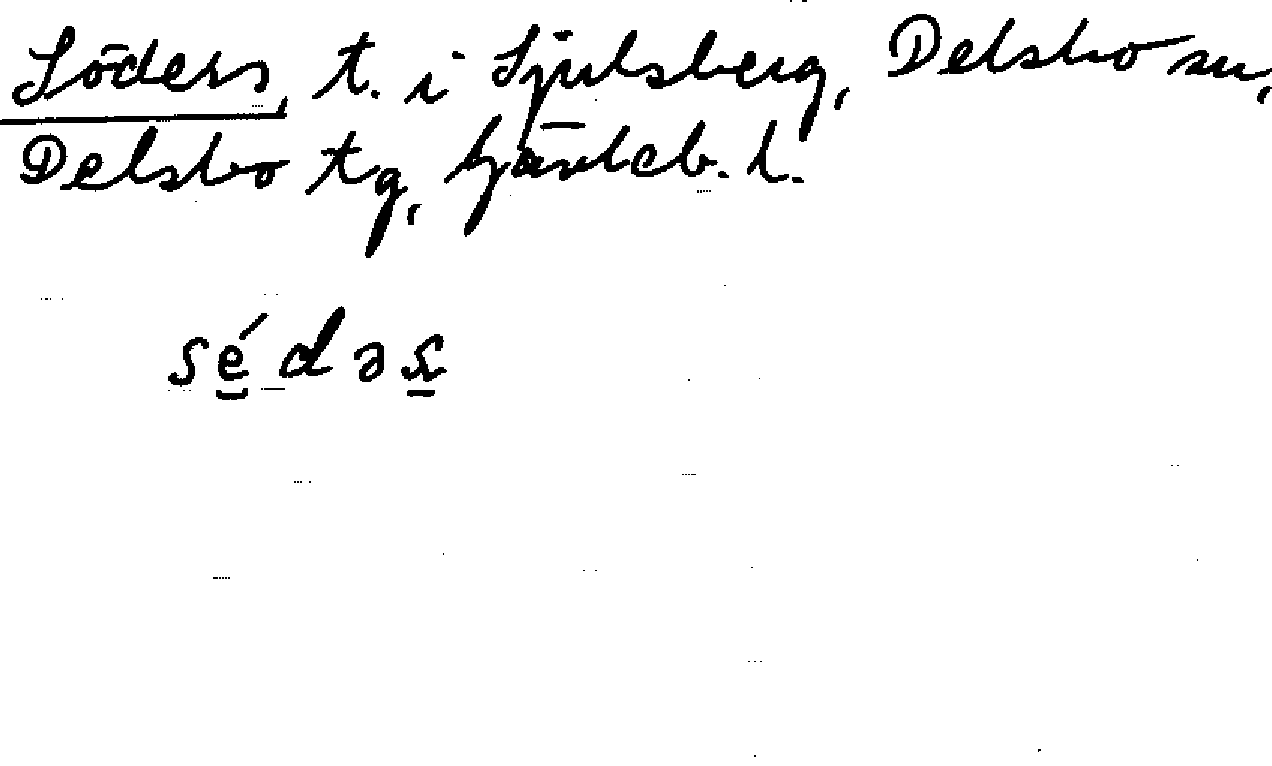 Söders, t. i Sjulsberg, Delsbo sn,
Delsbo tg, Gävleb. l.
sé̱dəs̱